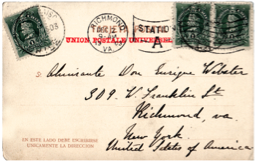 RICHMOND
VA.
STATION
A
UNION POSTALE UNIVERSELLE
Almirante Don Enrique Webster
309 W. Franklin St
Richmond, va
New York
United States of America
EN ESTE LADO DEBE ESCRIBIRSE
ÚNICAMENTE LA DIRECCION